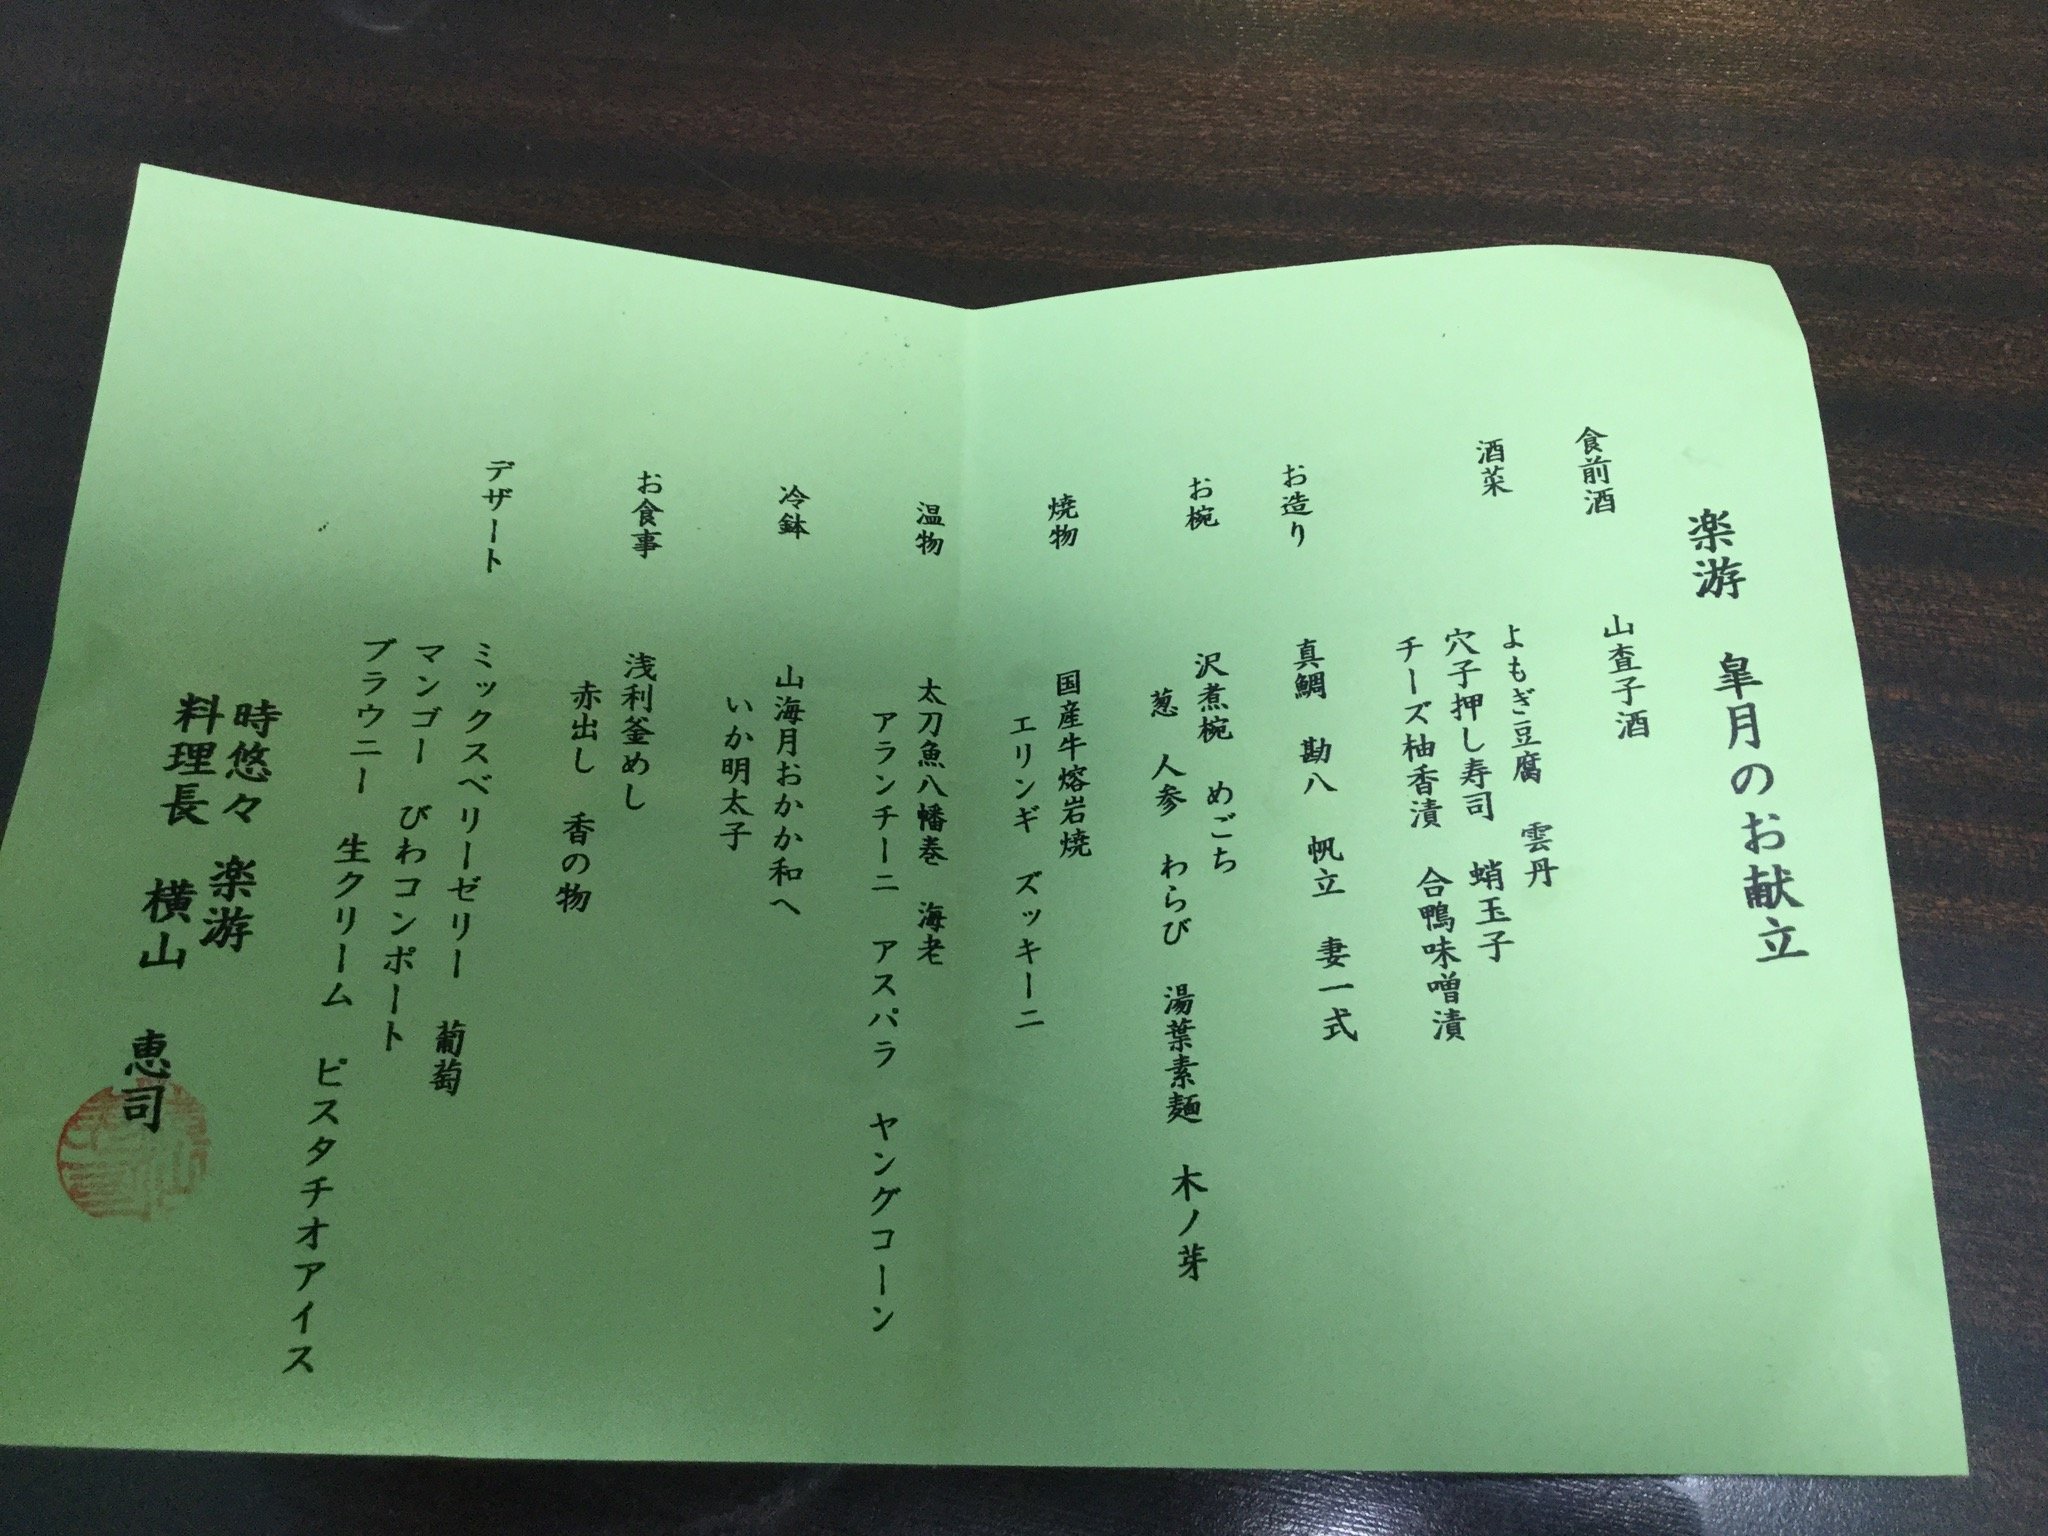 楽游　皐月のお献立
食前酒　山査子酒
酒菜　よもぎ豆腐　雲丹
穴子押し寿司　蛸玉子
チーズ柚香漬　合鴨味噌漬
お造り　真鯛　勘八　帆立　妻一式
お椀　沢煮椀　めごち
葱　人参　わらび　湯葉素麺　木ノ芽
焼物　国産牛熔岩焼
エリンギ　ズッキーニ
温物　太刀魚八幡巻　海老
アランチーニ　アスパラ　ヤングコーン
冷鉢　山海月おかか和へ
いか明太子
お食事　浅利釜めし
赤出し　香の物
デザート　ミックスベリーゼリー　葡萄
マンゴー　びわコンポート
ブラウニー　生クリーム　ピスタチオアイス
時悠々　楽游
料理長　横山　恵司